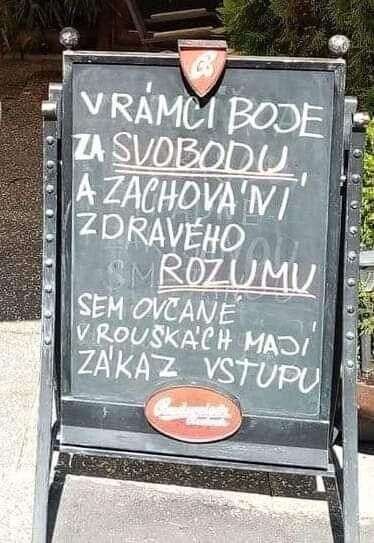 V RÁMCI BOJE
ZA SVOBODU
A ZACHOVÁNÍ
ZDRAVÉHO
ROZUMU
SEM OVČANÉ
V ROUŠKÁCH MAJÍ
ZÁKAZ VSTUPU